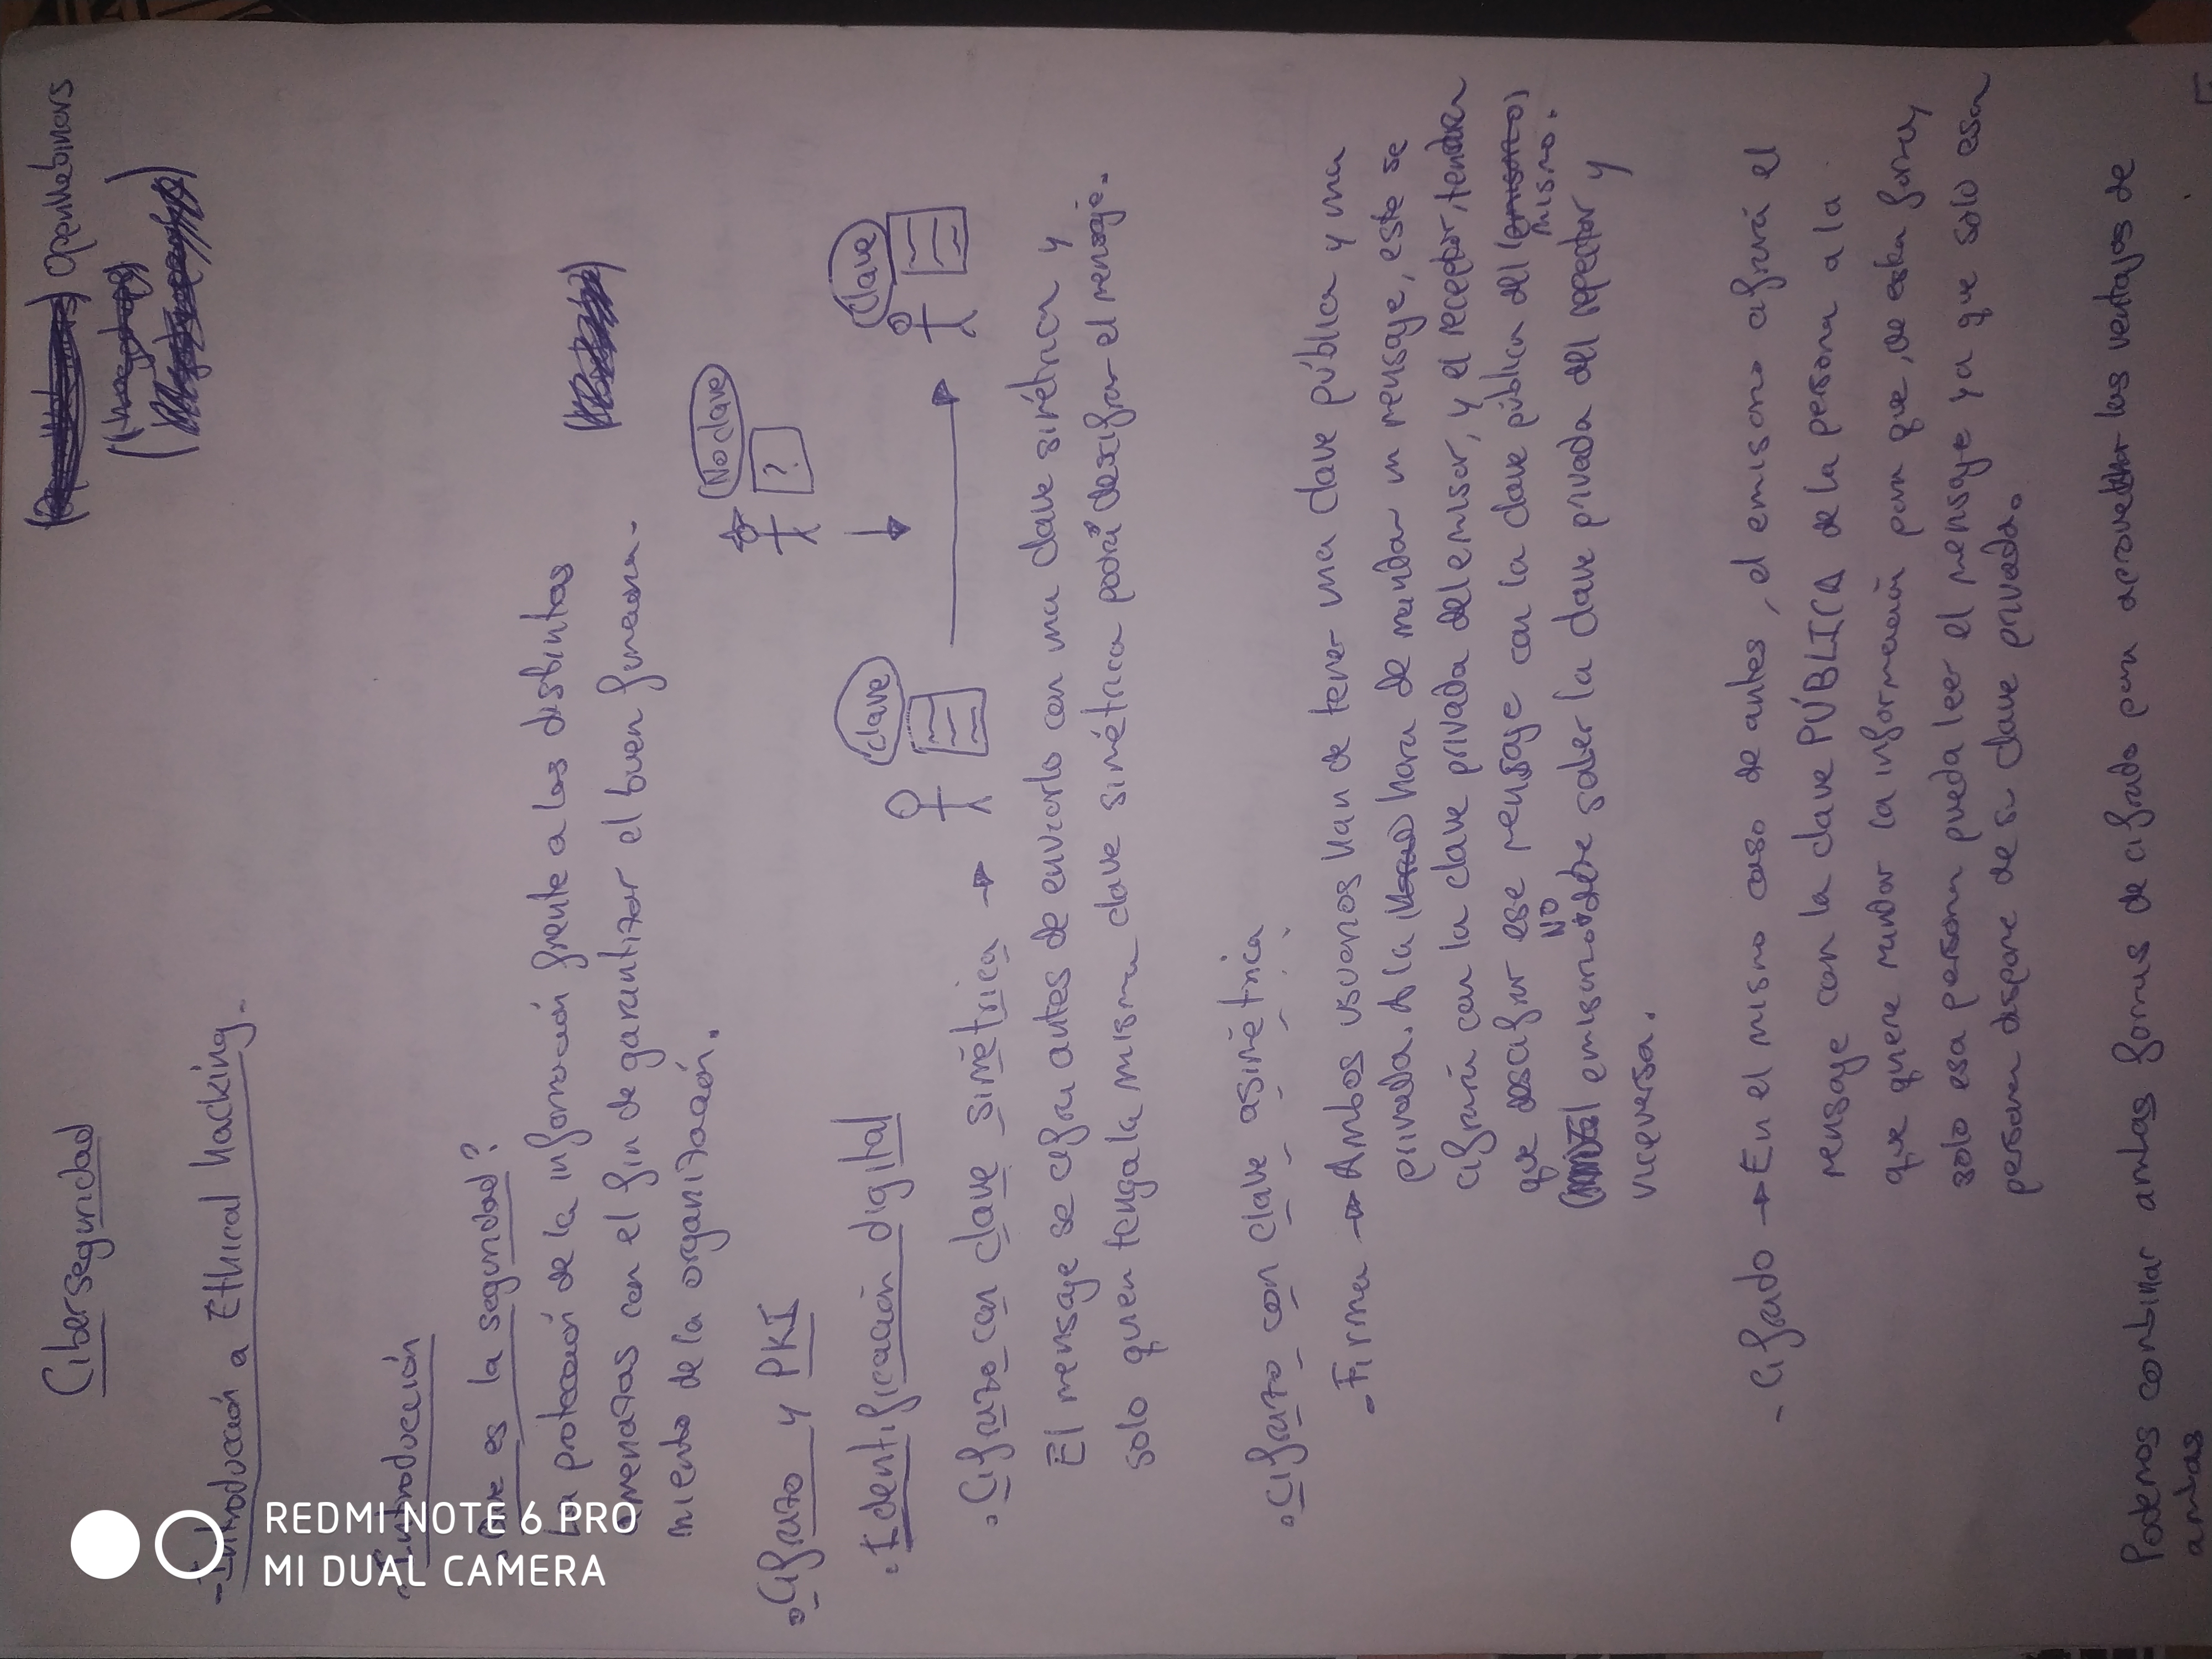 Ciberseguridad
Openwebinars
- Introducción a Ethical hacking.
- Introducción
- Que es la seguridad?
La protección de la información frente a las distintas
amenazas con el fin de garantizar el buen funciona-
miento de la organización.
• Cifrado y PKI
- Identificación digital
• Cifrado con clave simétrica →
clave
No clave
?
clave
El mensaje se cifra antes de enviarlo con una clave simétrica y
solo quien tenga la misma clave simétrica podrá descifrar el mensaje.
• Cifrado con clave asimétrica
- Firma → Ambos usuarios han de tener una clave pública y una
privada. A la hora de mandar un mensaje, este se
cifrará con la clave privada del emisor, y el receptor, tendrá
que descifrar ese mensaje con la clave pública del mismo.
El emisor NO debe saber la clave privada del receptor y
viceversa.
- Cifrado → En el mismo caso de antes, el emisor cifrará el
mensaje con la clave PÚBLICA de la persona a la
que quiere mandar la información para que, de esta forma,
solo esa persona pueda leer el mensaje ya que solo esa
persona dispone de su clave privada.
Podemos combinar ambas formas de cifrado para aprovechar las ventajas de
ambas
REDMI NOTE 6 PRO
MI DUAL CAMERA